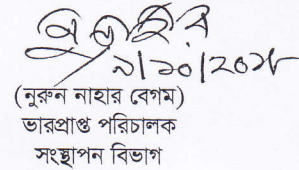 ৯/১০/২০১৮
(নুরুন নাহার বেগম)
ভারপ্রাপ্ত পরিচালক
সংস্থাপন বিভাগ